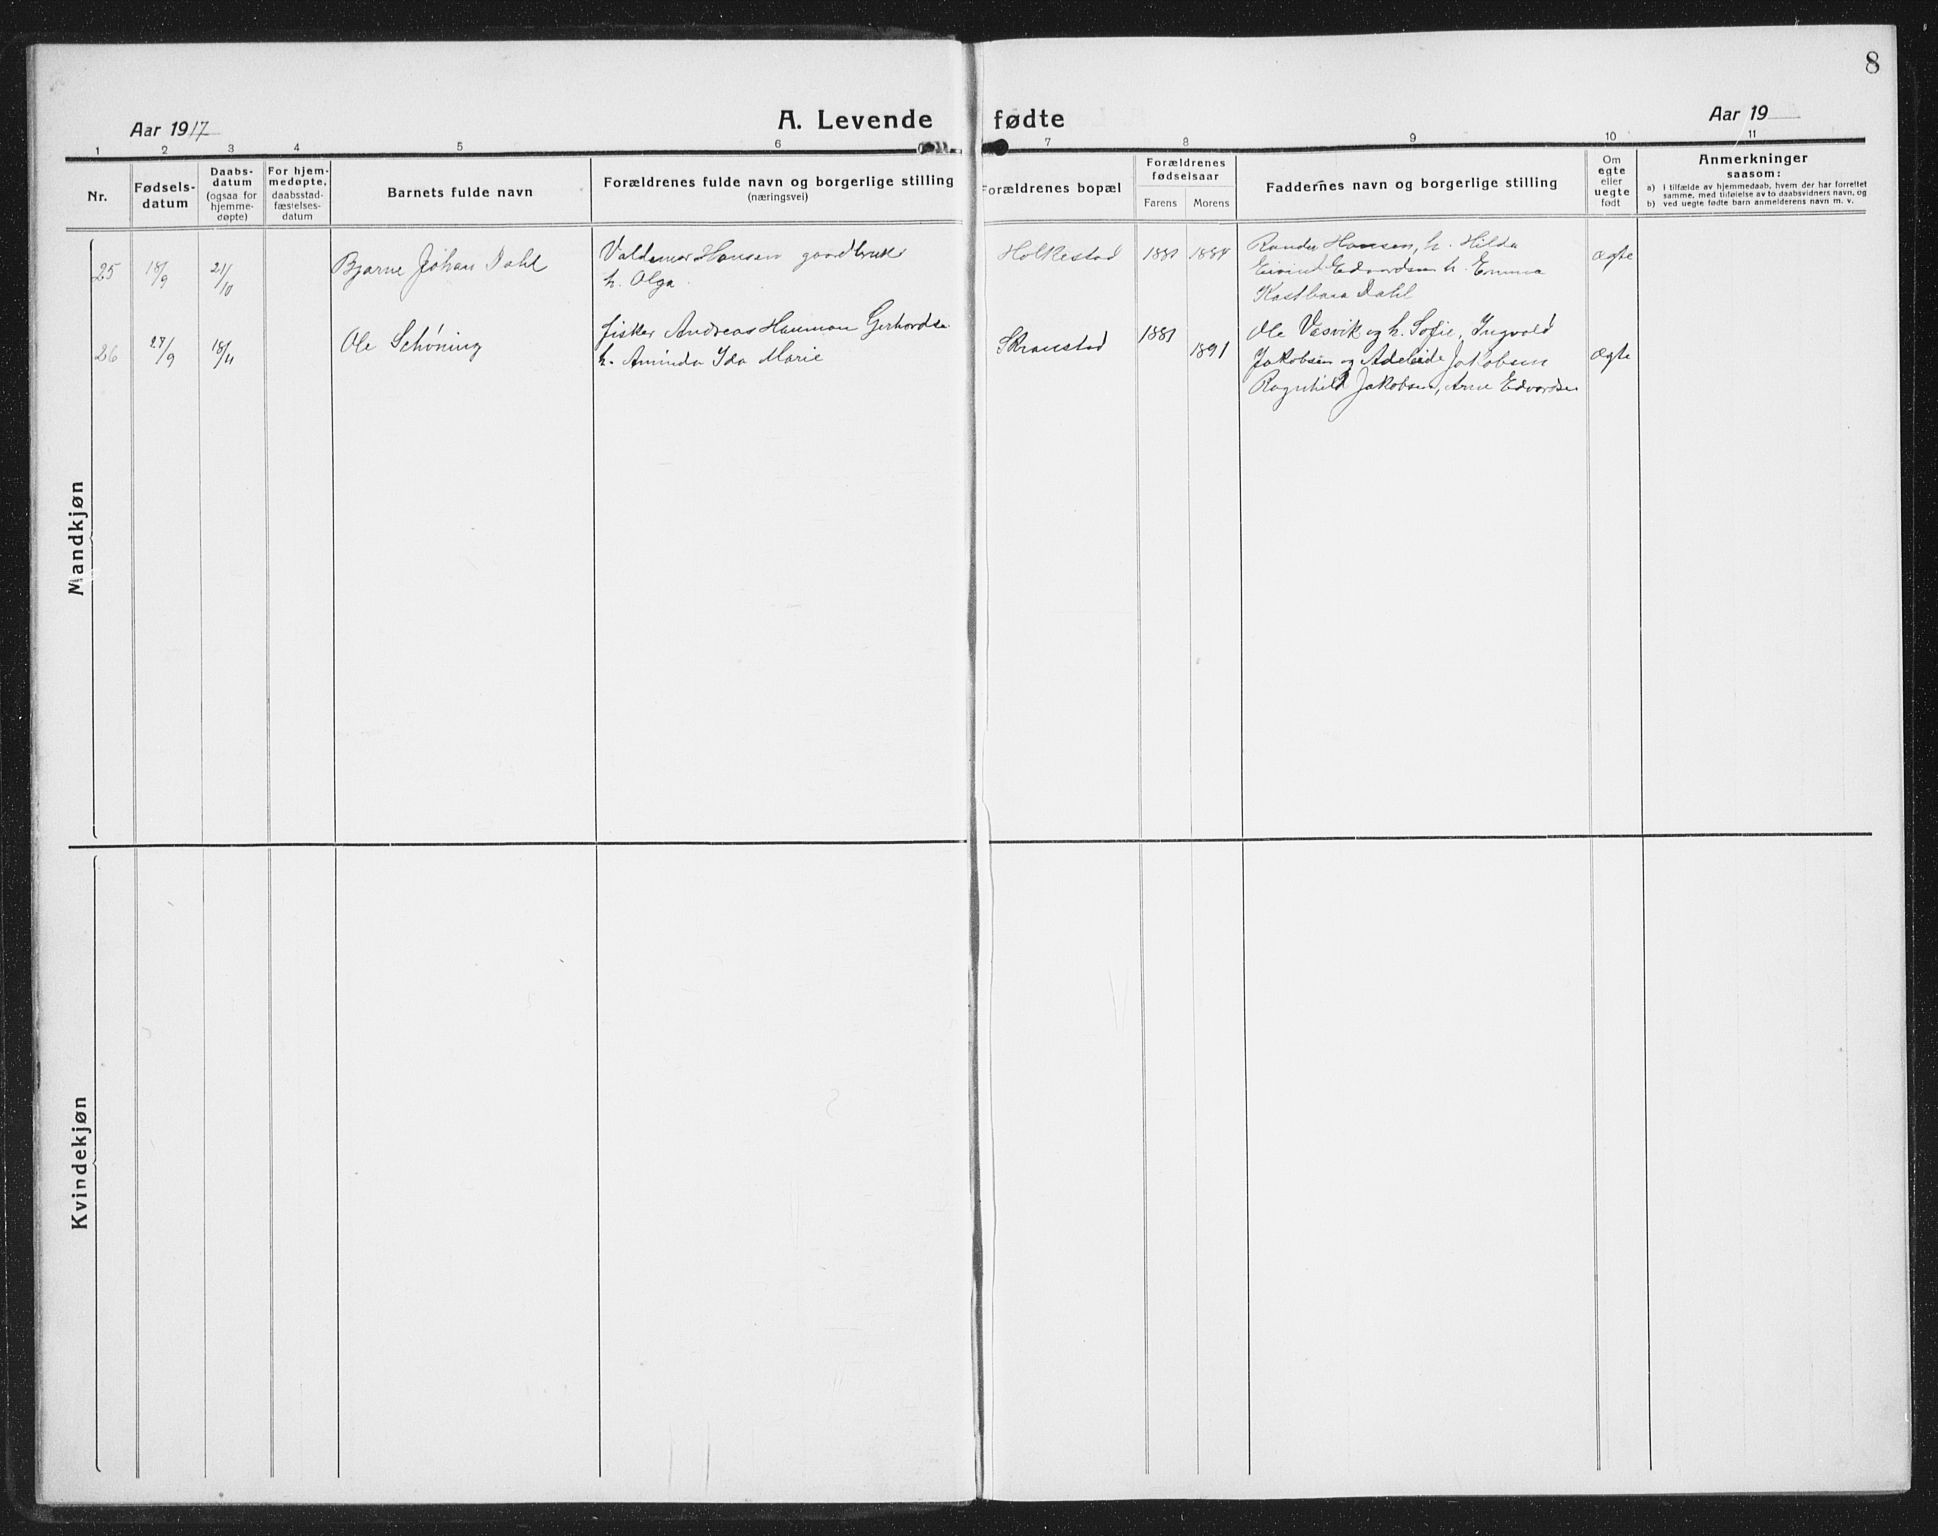 8
Aar 1917
A. Levende fødte
Aar 19
1 2 3 4 5 6 7 8 9 10 11
Nr.
Fødsels-
datum
Daabs-
datum
(ogsaa for
hjemme-
døpte)
For hjem-
medøpte,
daabsstad-
fæstelses-
datum
Barnets fulde navn
Forældrenes fulde navn og borgerlige stilling
(næringsvei)
Forældrenes bopæl
Forældrenes
fødselsaar
Farens Morens
Faddernes navn og borgerlige stilling
Om
egte
eller
uegte
født
Anmerkninger
saasom:
a) i tilfælde av hjemmedaab, hvem der har forrettet
samme, med tilføielse av to daabsvidners navn, og
b) ved uegte fødte barn anmelderens navn m. v.
Mandkjøn
25
18/9
21/10
Bjarne Johan Dahl
Valdemar Hansen gaardbruker
h. Olga
Holkestad
1881
1884
Hansen, h. Hilda
Eivind Edvardsen h. Emma
Dahl
Ægte
26
27/9
18/11
Ole Schøning
fisker Andreas Hauman Gerhardse
h. Aminda Ida Marie
Skranstad
1881
1891
Ole Vasvik og h. Sofie, Ingvald
Jakobsen og Adeleide Jakobsen
Ragnhild Jakobsen, Arne Edvardse
Ægte
Kvindekjøn